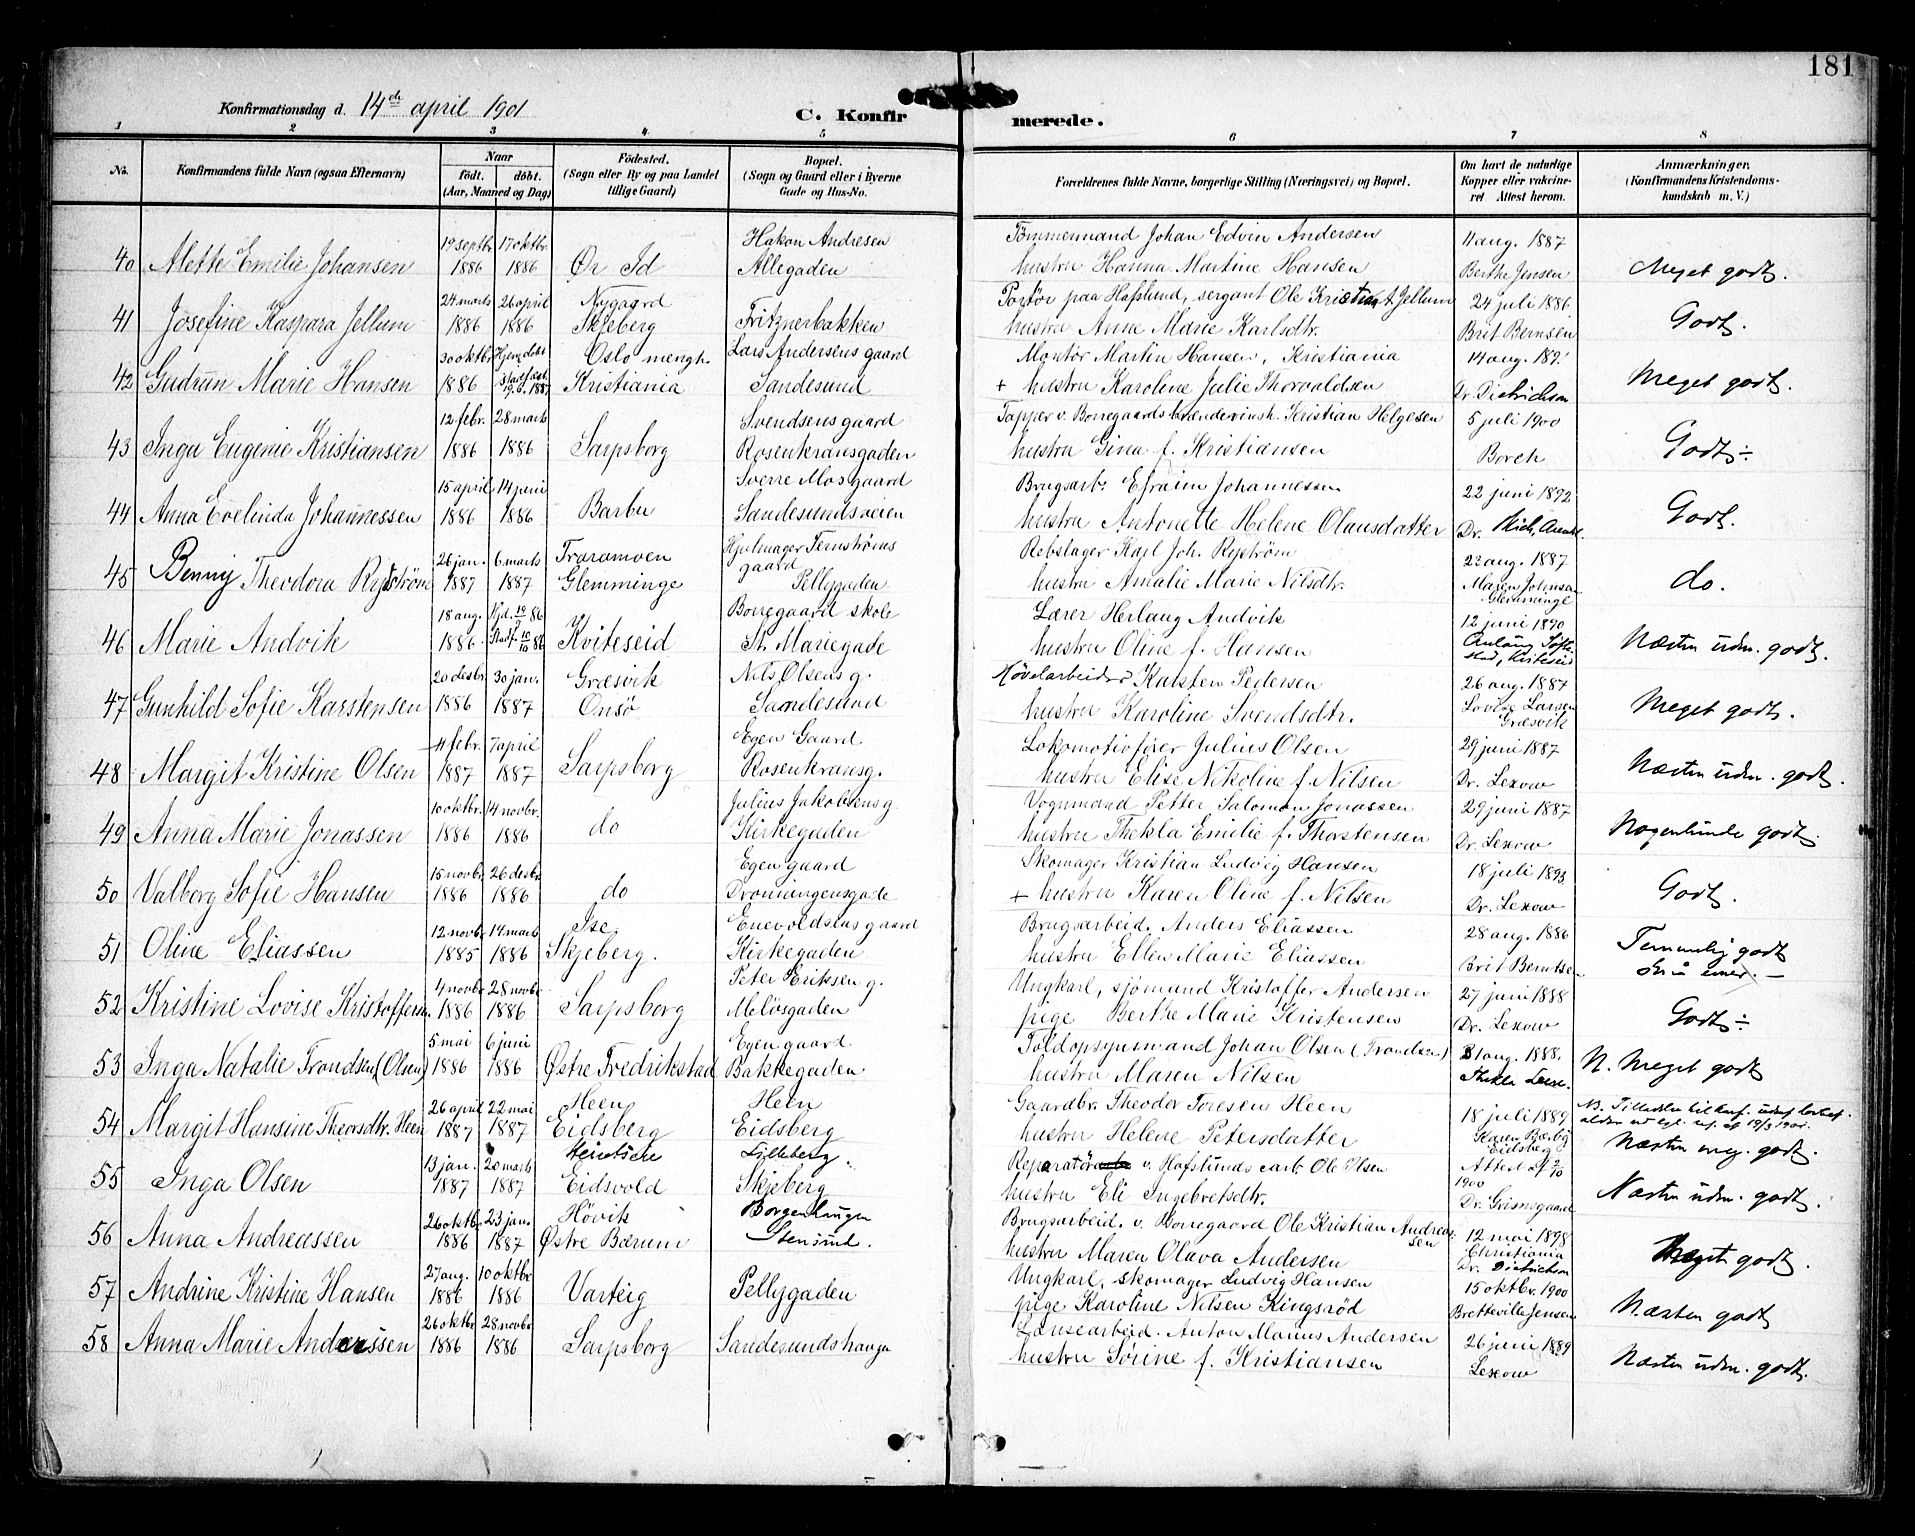 181
Konfirmationsdag d. 14de april 1901
C. Konfirmerede.
1 2 3 4 5 6 7 8
No.
Konfirmandens fulde Navn (ogsaa Efternavn)
Naar
födt. döbt.
(Aar, Maaned og Dag)
Födested.
(Sogn eller By og paa Landet
tillige Gaard)
Bopæl.
(Sogn og Gaard eller i Byerne
Gade og Hus-No.
Forældrenes fulde Navne, borgerlige Stilling (Næringsvei) og Bopæl.
Om havt de naturlige
Kopper eller vakcine-
ret Attest herom.
Anmærkninger.
(Konfirmandens Kristendoms-
kundskab m. V.)
19 septbr. 17 oktbr. Hakon Andresen Tömmermand Johan Edvin Andersen 11 aug. 1887
40 Alette Emilie Johansen 1886 1886 Ör Id Allegaden hustru Hanna Martine Hansen Berthe Jensen Meget godt.
24 marts 26 april Nygaard Portör paa Hafslund, sergant Ole Kristian A Jellum 24 juli 1886
41 Josefine Kaspara Jellum 1886 1886 Skjeberg Fritznerbakken hustru Anne Marie Karlsdtr. Brit Bernsen Godt.
30 oktbr. Hjemdöbt Oslo mengh. Lars Andersens gaard Montör Martin Hansen, Kristiania 14 aug.
42 Gudrun Marie Hansen 1886 Kristiania Sandesund + hustru Karoline Julie Thorvaldsen Dr. Dietrichson Meget godt.
12 febr. 28 marts Svendsens gaard Tapper v. Borregaards brændevinsh. Kristian Helgesen 5 juli 1900
43 Inga Eugenie Kristiansen 1886 1886 Sarpsborg Rosenkransgaden hustru Gina f. Kristiansen Borch Godt ÷
15 april 14 juni Sverre Mos gaard Brugsarb. Efraim Johannessen 22 juni 1892
44 Anna Evelinda Johannessen 1886 1886 Barbu Sandesundsveien hustru Antonette Helene Olausdatter Dr. Godt.
26 jan. 6 marts Traramoen Hjulmager Ternströms gaard Rebslager Karl Joh. Ryström 23 aug. 1887
45 Benny Theodora Ryström 1887 1887 Glemminge Pellygaden hustru Amalie Marie Nilsdtr. Maren Johnsen Glemminge do.
18 aug. Hjd. 19/9 86 Borregaard skole Lærer Herlaug Andvik 12 juni 1890
46 Marie Andvik 1886 Stadf. 10/10 86 Kviteseid St. Mariegade hustru Oline f. Hansen Næsten udm. godt.
20 desbr. 30 jan. Græsvik Nils Olsens g. Hövelarbeider Karsten Pedersen 26 aug. 1887
47 Gunhild Sofie Karstensen 1886 1887 Onsö Sandesund hustru Karoline Svendsdtr. Lovise Larsen Græsvik Meget godt.
11 febr. 7 april Egen Gaard Lokomotivförer Julius Olsen 29 juni 1887
48 Margit Kristine Olsen 1887 1887 Sarpsborg Rosenkransg. hustru Elise Nikoline f. Nilsen Dr. Lexow Næsten udm. godt.
10 oktbr. 14 novbr. Julius Jakobsens g. Vognmand Petter Salomon Jonassen 29 juni 1887
49 Anna Marie Jonassen 1886 1886 do Kirkegaden hustru Thekla Emilie f. Thorstensen Dr. Lexow Nogenlunde godt.
15 novbr. 26 desbr. Egen gaard Skomager Kristian Ludvig Hansen 18 juli 1893
50 Valborg Sofie Hansen 1886 1886 do Dronningensgade + hustru Karen Oline f. Nilsen Dr. Lexow Godt.
12 novbr. 14 marts Ise Enevoldsens gaard Brugsarbeid. Anders Eliassen 28 aug. 1886
51 Oline Eliassen 1885 1886 Skjeberg. Kirkegaden hustru Ellen Marie Eliassen Brit Berntsen Temmelig godt
4 novbr. 28 novbr. Peter Eriksen g. Ungkarl, sjömand Kristoffer Andersen 27 juni 1888
52 Kristine Lovise Kristoffersen 1886 1886 Sarpsborg Melösgaden pige Berthe Marie Kristensen Dr. Lexow Godt ÷
5 mai 6 juni Egen gaard Toldopsynsmand Johan Olsen (Trondsen) 31 aug. 1888.
53 Inga Natalie Trondsen (Olsen) 1886 1886 Östre Fredrikstad Bakkegaden hustru Maren Nilsen Thekla N. Meget godt
26 april 22 mai Heen Heen Gaardbr. Theodor Toresen Heen 18 juli 1889
54 Margit Hansine Theodsdtr. Heen 1887 1887 Eidsberg Eidsberg hustru Helene Petersdatter Karen Eidsberg Næsten meg. godt.
13 jan. 20 marts Lilleberg. Reparatör v. Hafslunds carb. Ole Olsen Attest af 2/10 1900
55 Inga Olsen 1887 1887 Eidsvold Skjeberg hustru Eli Ingebretsdtr. Dr. Grimsgaard Næsten udm. godt.
26 oktbr. 23 jan. Hövik Borgenhaugen Brugsarbeid. v. Borregaard Ole Kristian Andreassen 12 mai 1898
56 Anna Andreassen 1886 1887 Östre Bærum hustru Maren Olava Andersen Christiania Dr. Dietrichson Meget godt.
27 aug. 10 oktbr. Ungkarl, skomager Ludvig Hansen 15 oktbr. 1900
57 Andrine Kristine Hansen 1886 1886 Varteig Pellygaden pige Karoline Nilsen Kingsröd Bretteville Jensen Næsten godt
26 oktbr. 28 novbr. Lænsearbeid. Anton Marius Andersen 26 juni 1889
58 Anna Marie Anderssen 1886 1886 Sarpsborg Sandesundshaugen hustru Sörine f. Kristiansen Lexow Næsten udm. godt.